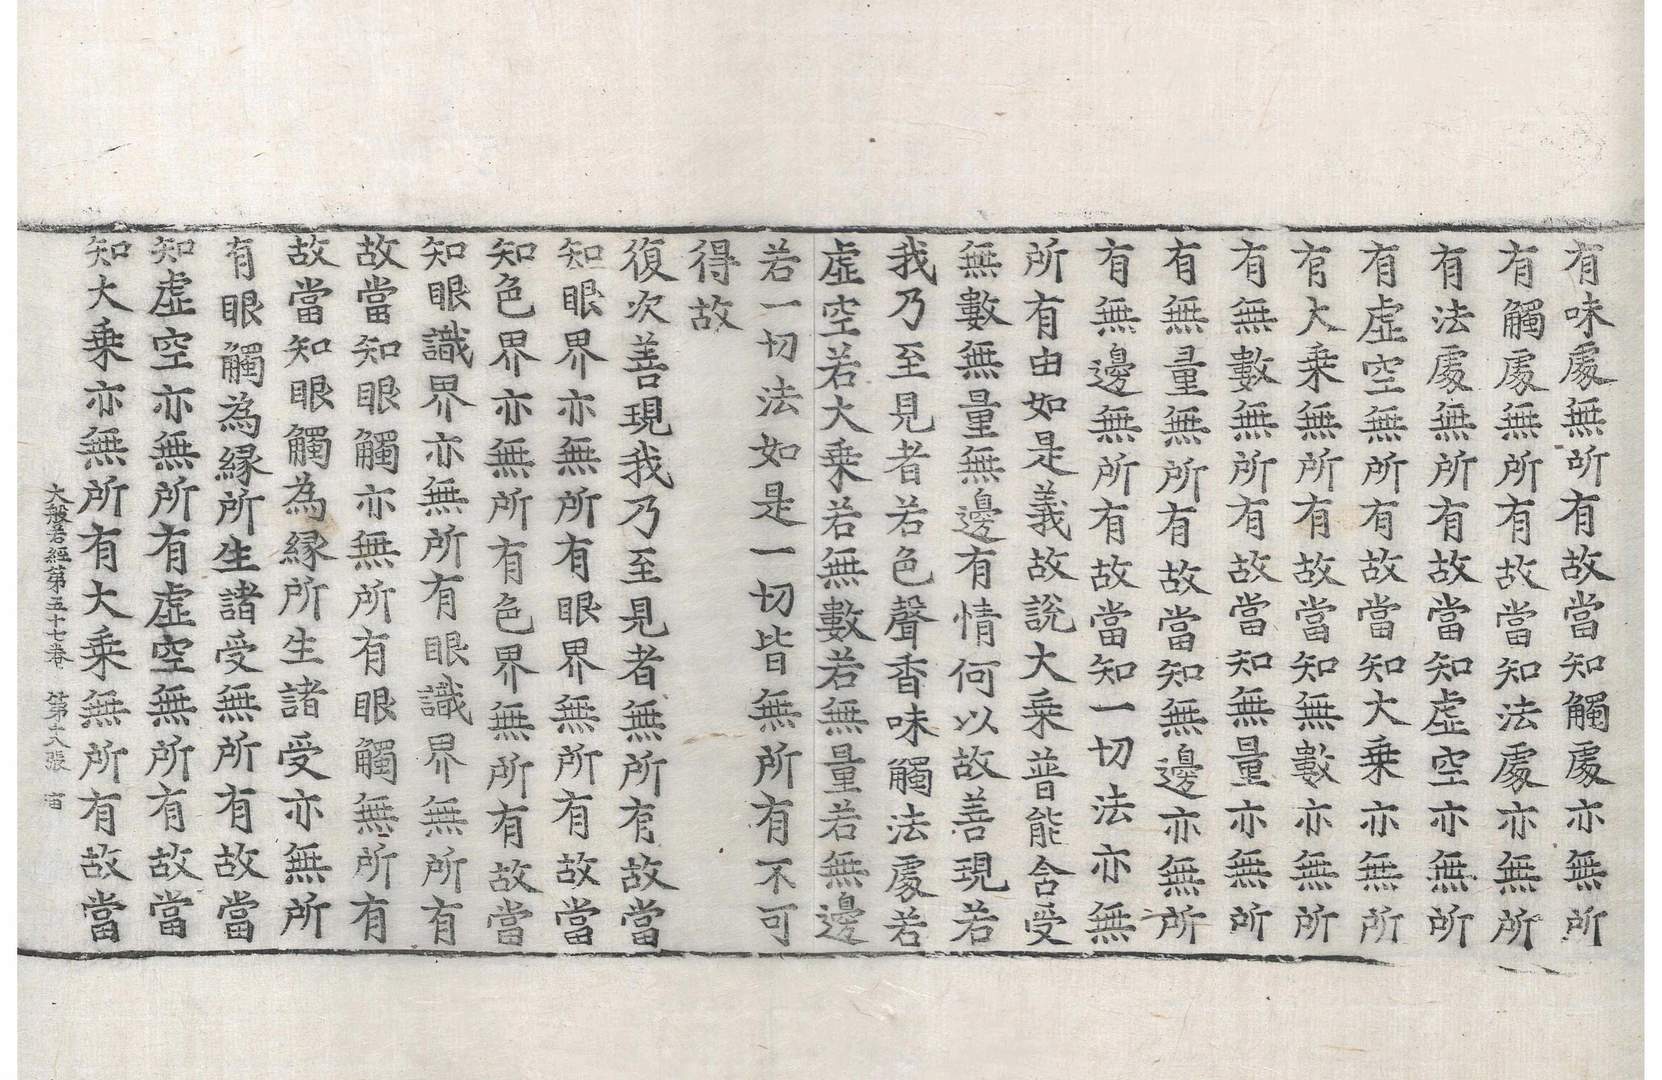 有味處無所有故當知觸處亦無所
有觸處無所有故當知法處亦無所
有法處無所有故當知虛空亦無所
有虛空無所有故當知大乗亦無所
有大乗無所有故當知無數亦無所
有無數無所有故當知無量亦無所
有無量無所有故當知無邊亦無所
有無邊無所有故當知一切法亦無
所有由如是義故說大乗普能含受
無數無量無邊有情何以故善現若
我乃至見者若色聲香味觸法處若
虛空若大乗若無數若無量若無邊
若一切法如是一切皆無所有不可
得故
復次善現我乃至見者無所有故當
知眼界亦無所有眼界無所有故當
知色界亦無所有色界無所有故當
知眼識界亦無所有眼識界無所有
故當知眼觸亦無所有眼觸無所有
故當知眼觸為緣所生諸受亦無所
有眼觸為緣所生諸受無所有故當
知虛空亦無所有虛空無所有故當
知大乗亦無所有大乗無所有故當
大般若經第五十七卷 第六張 宙